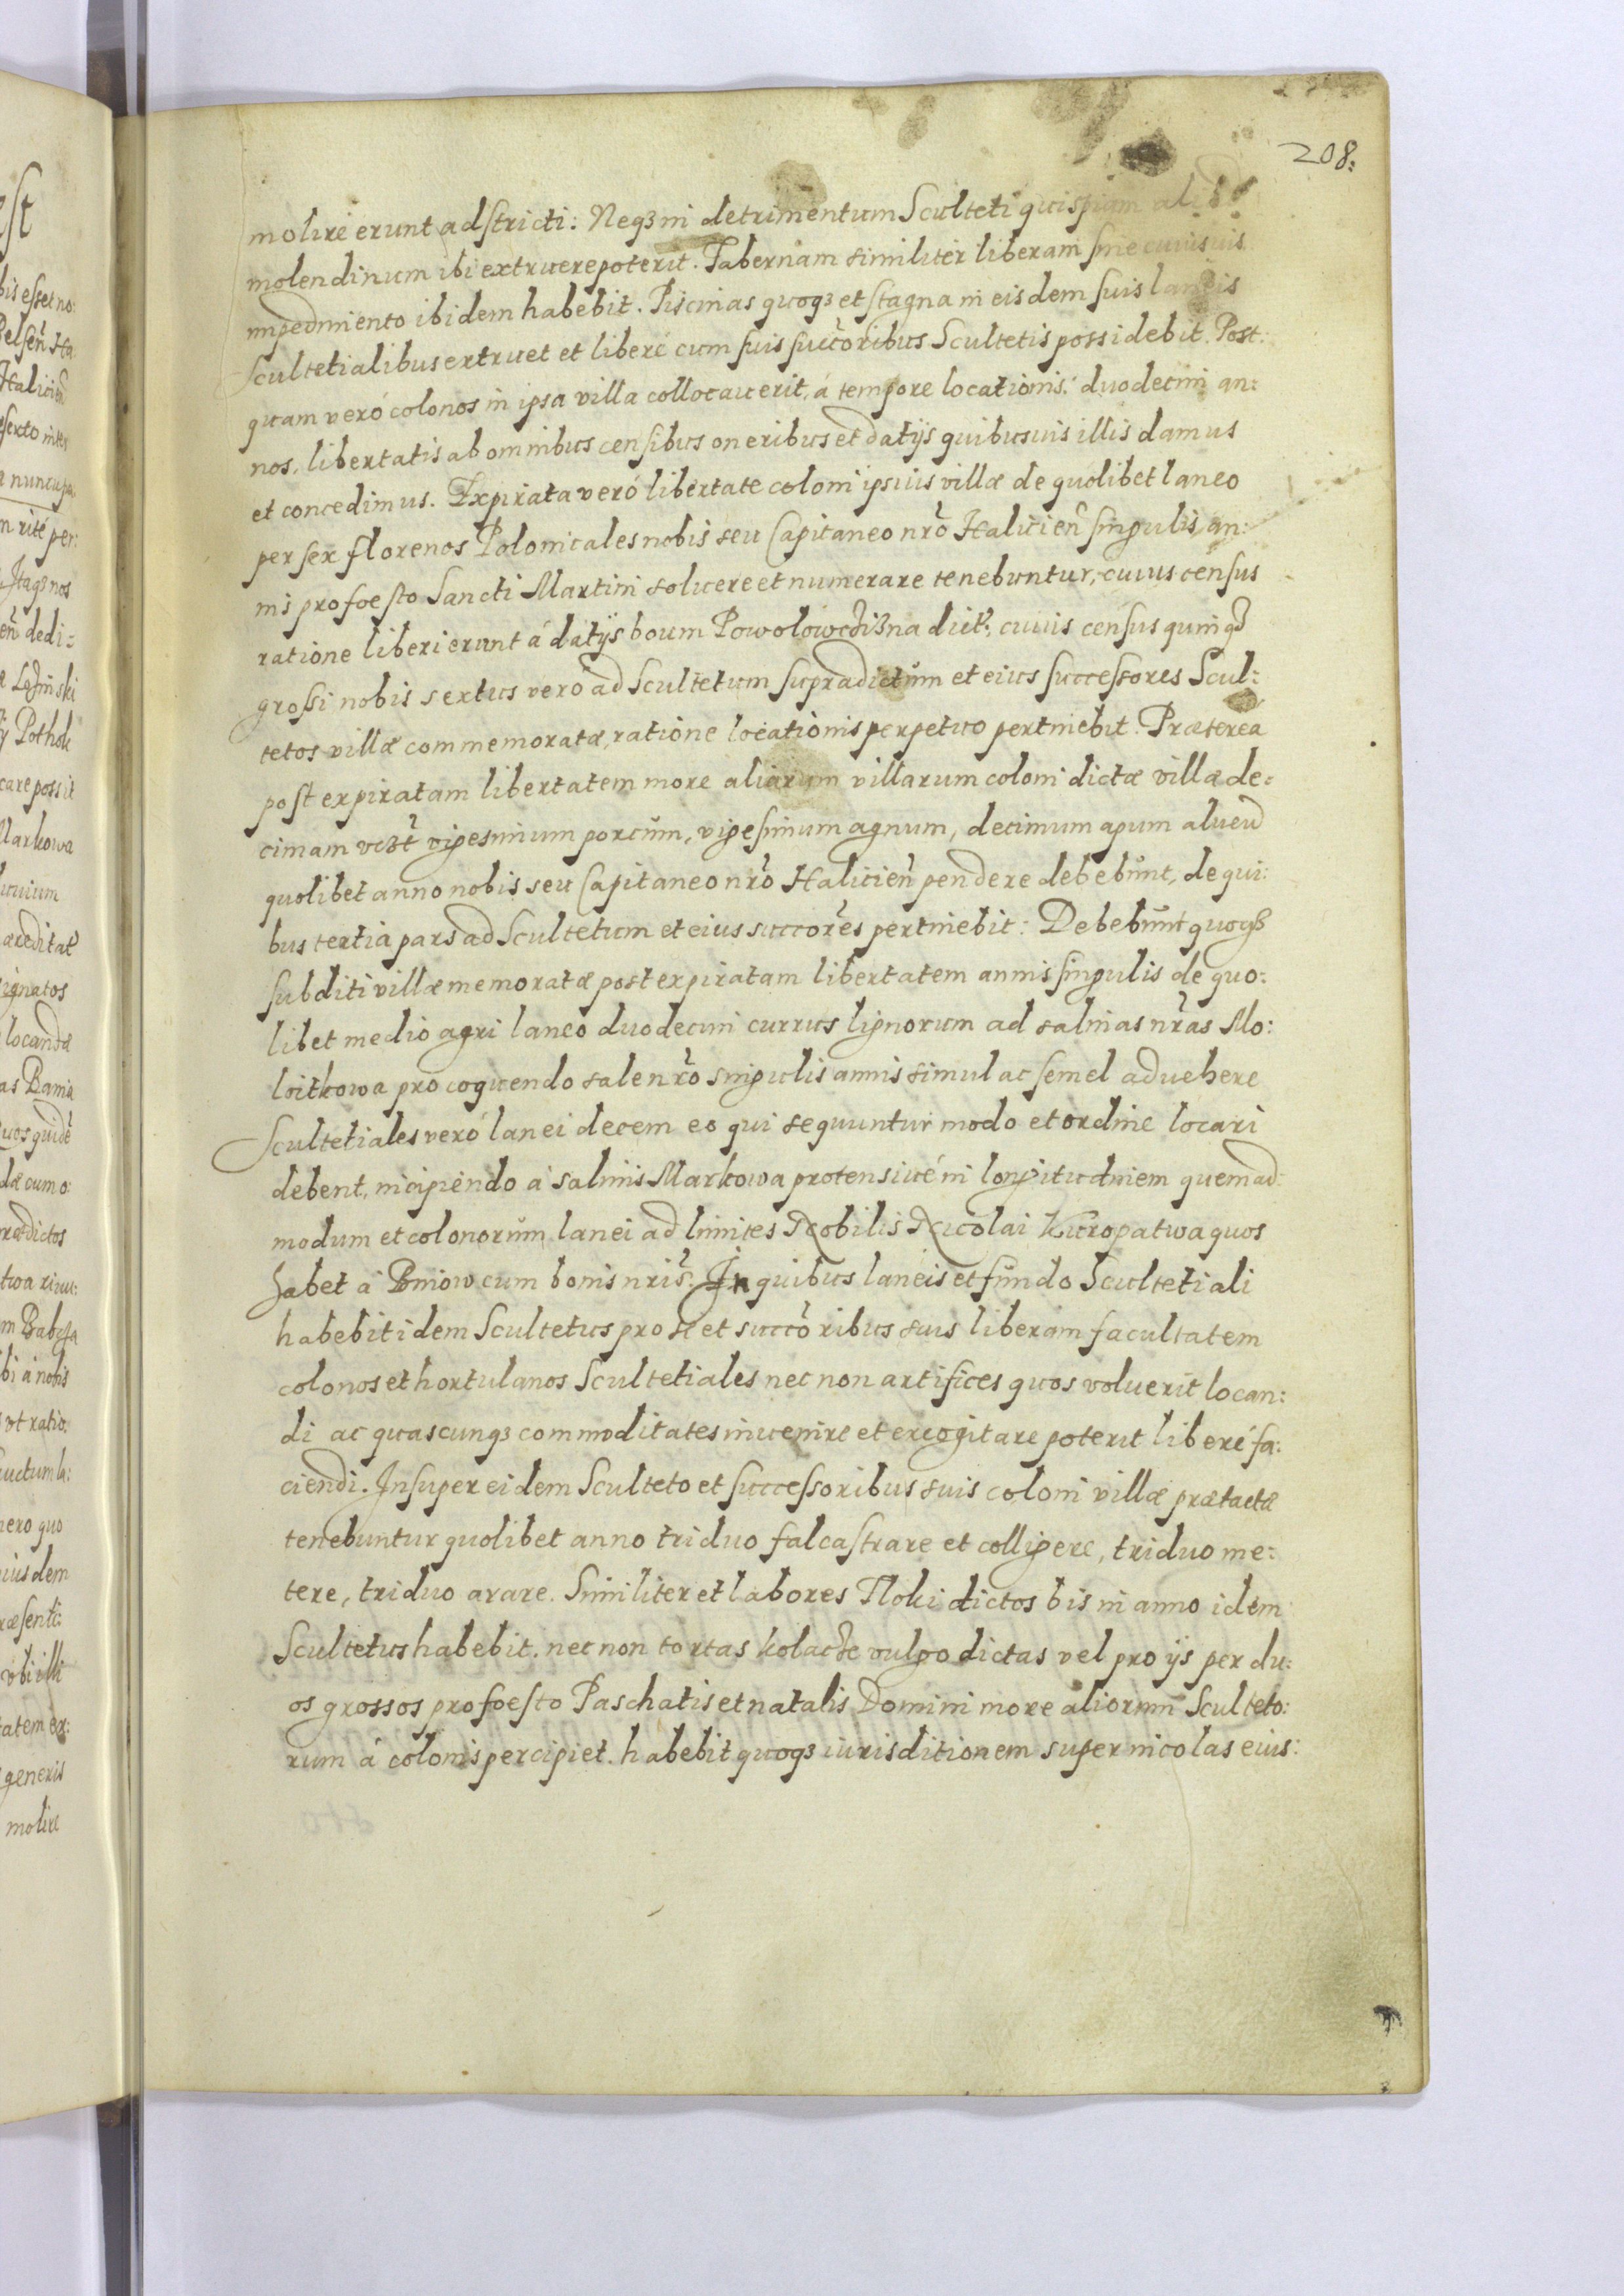 208.
molire erunt adstricti: Neqꝫ in detrimentum Sculteti quispiam aliud
molendinum ibi extruere poterit. Tabernam similiter liberam sine cuiusuis
impedimento ibidem habebit. Piscinas quoqꝫ et stagna in eisdem suis laneis
Scultetialibus extruet et liberé cum suis succōribus Scultetis possidebit. Post:
quam veró colonos in ipsa villa collocauerit, á tempore locationis: duodecim an:
nos, libertatis ab omnibus censibus oneribus et datijs quibusuis illis damus
et concedimus. Expirata veró libertate coloni ipsius villæ de quolibet laneo
per sex florenos Polonicales nobis seu Capitaneo nr̃o Halicień singulis an:
nis pro foesto Sancti Martini soluere et numerare tenebuntur, cuius census
ratione liberi erunt á datijs boum Powolowcżiʒna dict:, cuius census quinqꝫ
grossi nobis sextus vero ad Scultetum supradictum et eius successores Scul:
tetos villæ commemoratæ, ratione locationis perpetuo pertinebit. Præterea
post expiratam libertatem more aliarum villarum coloni dictæ villæ de:
cimam vcꝫt vigesimum porcum, vigesimum agnum, decimum apum alueũ
quolibet anno nobis seu Capitaneo nr̃o Halicień pendere debebunt, de qui:
bus tertia pars ad Scultetum et eius succōres pertinebit: Debebunt quoqꝫ
subditi villæ memoratæ post expiratam libertatem annis singulis de quo:
libet medio agri laneo duodecim currus lignorum ad salinas nr̃as Mo:
loitkowa pro coquendo sale nr̃o singulis annis simul ac semel aduehere
Scultetiales veró lanei decem eo qui sequuntur modo et ordine locari
debent, incipiendo á salinis Markowa protensiué in longitudinem quemad:
modum et colonorum lanei ad limites Nobilis Nicolai Kuropatwa quos
habet á Bniow cum bonis nr̃is. In quibus laneis et fundo Scultetiali
habebit idem Scultetus pro se et succōribus suis liberam facultatem
colonos et hortulanos Scultetiales nec non artifices quos voluerit locan:
di ac quascunqꝫ commoditates inuenire et excogitare poterit liberé fa:
ciendi. Insuper eidem Sculteto et successoribus suis coloni villæ prætactæ
tenebuntur quolibet anno triduo falcastrare et colligere, triduo me:
tere, triduo arare. Similiter et labores Tloki dictos bis in anno idem
Scultetus habebit. nec non tortas kolacże vulgo dictas vel pro ijs per du:
os grossos pro foesto Paschatis et natalis Domini more aliorum Sculteto:
rum á colonis percipiet. habebit quoqꝫ iurisditionem super incolas eius: